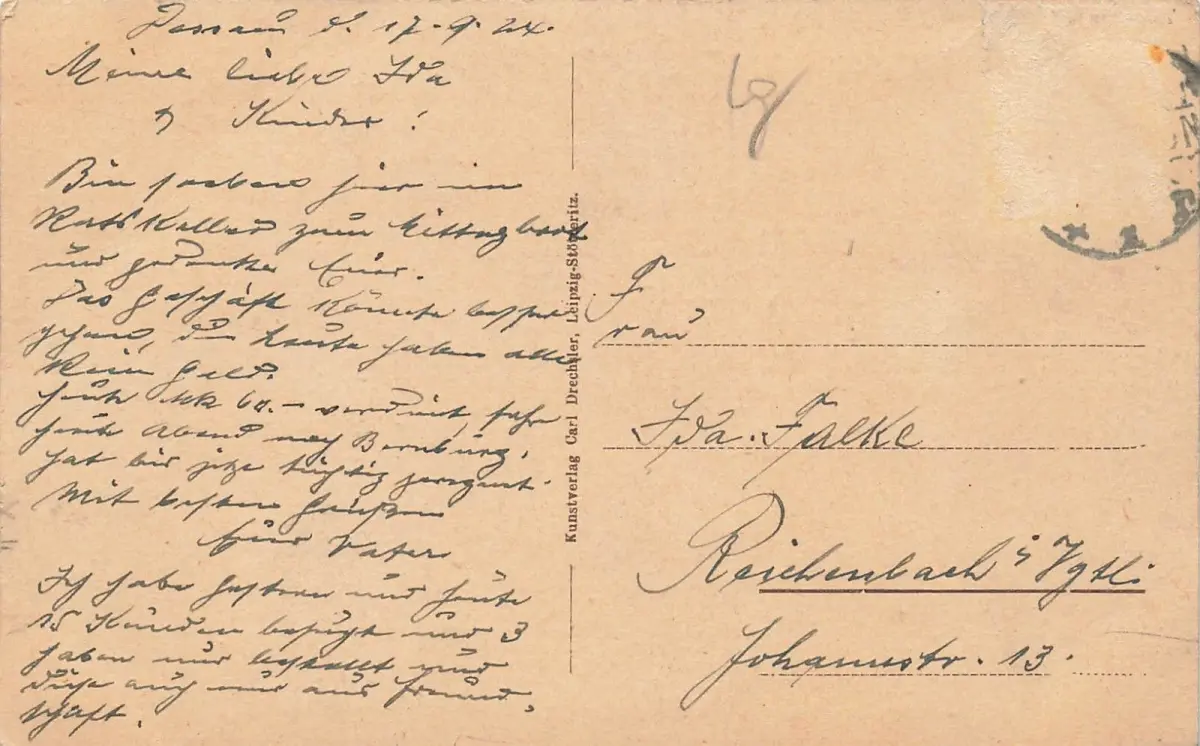 Dessau d. 17.9.24.
Meine liebe Ida
u Kinder!
Bin soeben hier im
Ratskeller zum Mittagbrot
und gedenke Euer.
Das Geschäft könnte besser
gehen, die Leute haben alle
kein Geld.
heute Mk 60.– verdient, fahre
heute Abend nach Bernburg,
hat bis jetzt tüchtig geregnet.
Mit besten Grüßen
Euer Vater
Ich habe gestern und heute
15 Kunden besucht und 3
haben nur bestellt und
diese auch nur aus Freund-
schaft.
Kunstverlag Carl Drechsler, Leipzig-Stötteritz.
Frau
Ida. Falke
Reichenbach i/Vgtl:
Johannstr. 13.